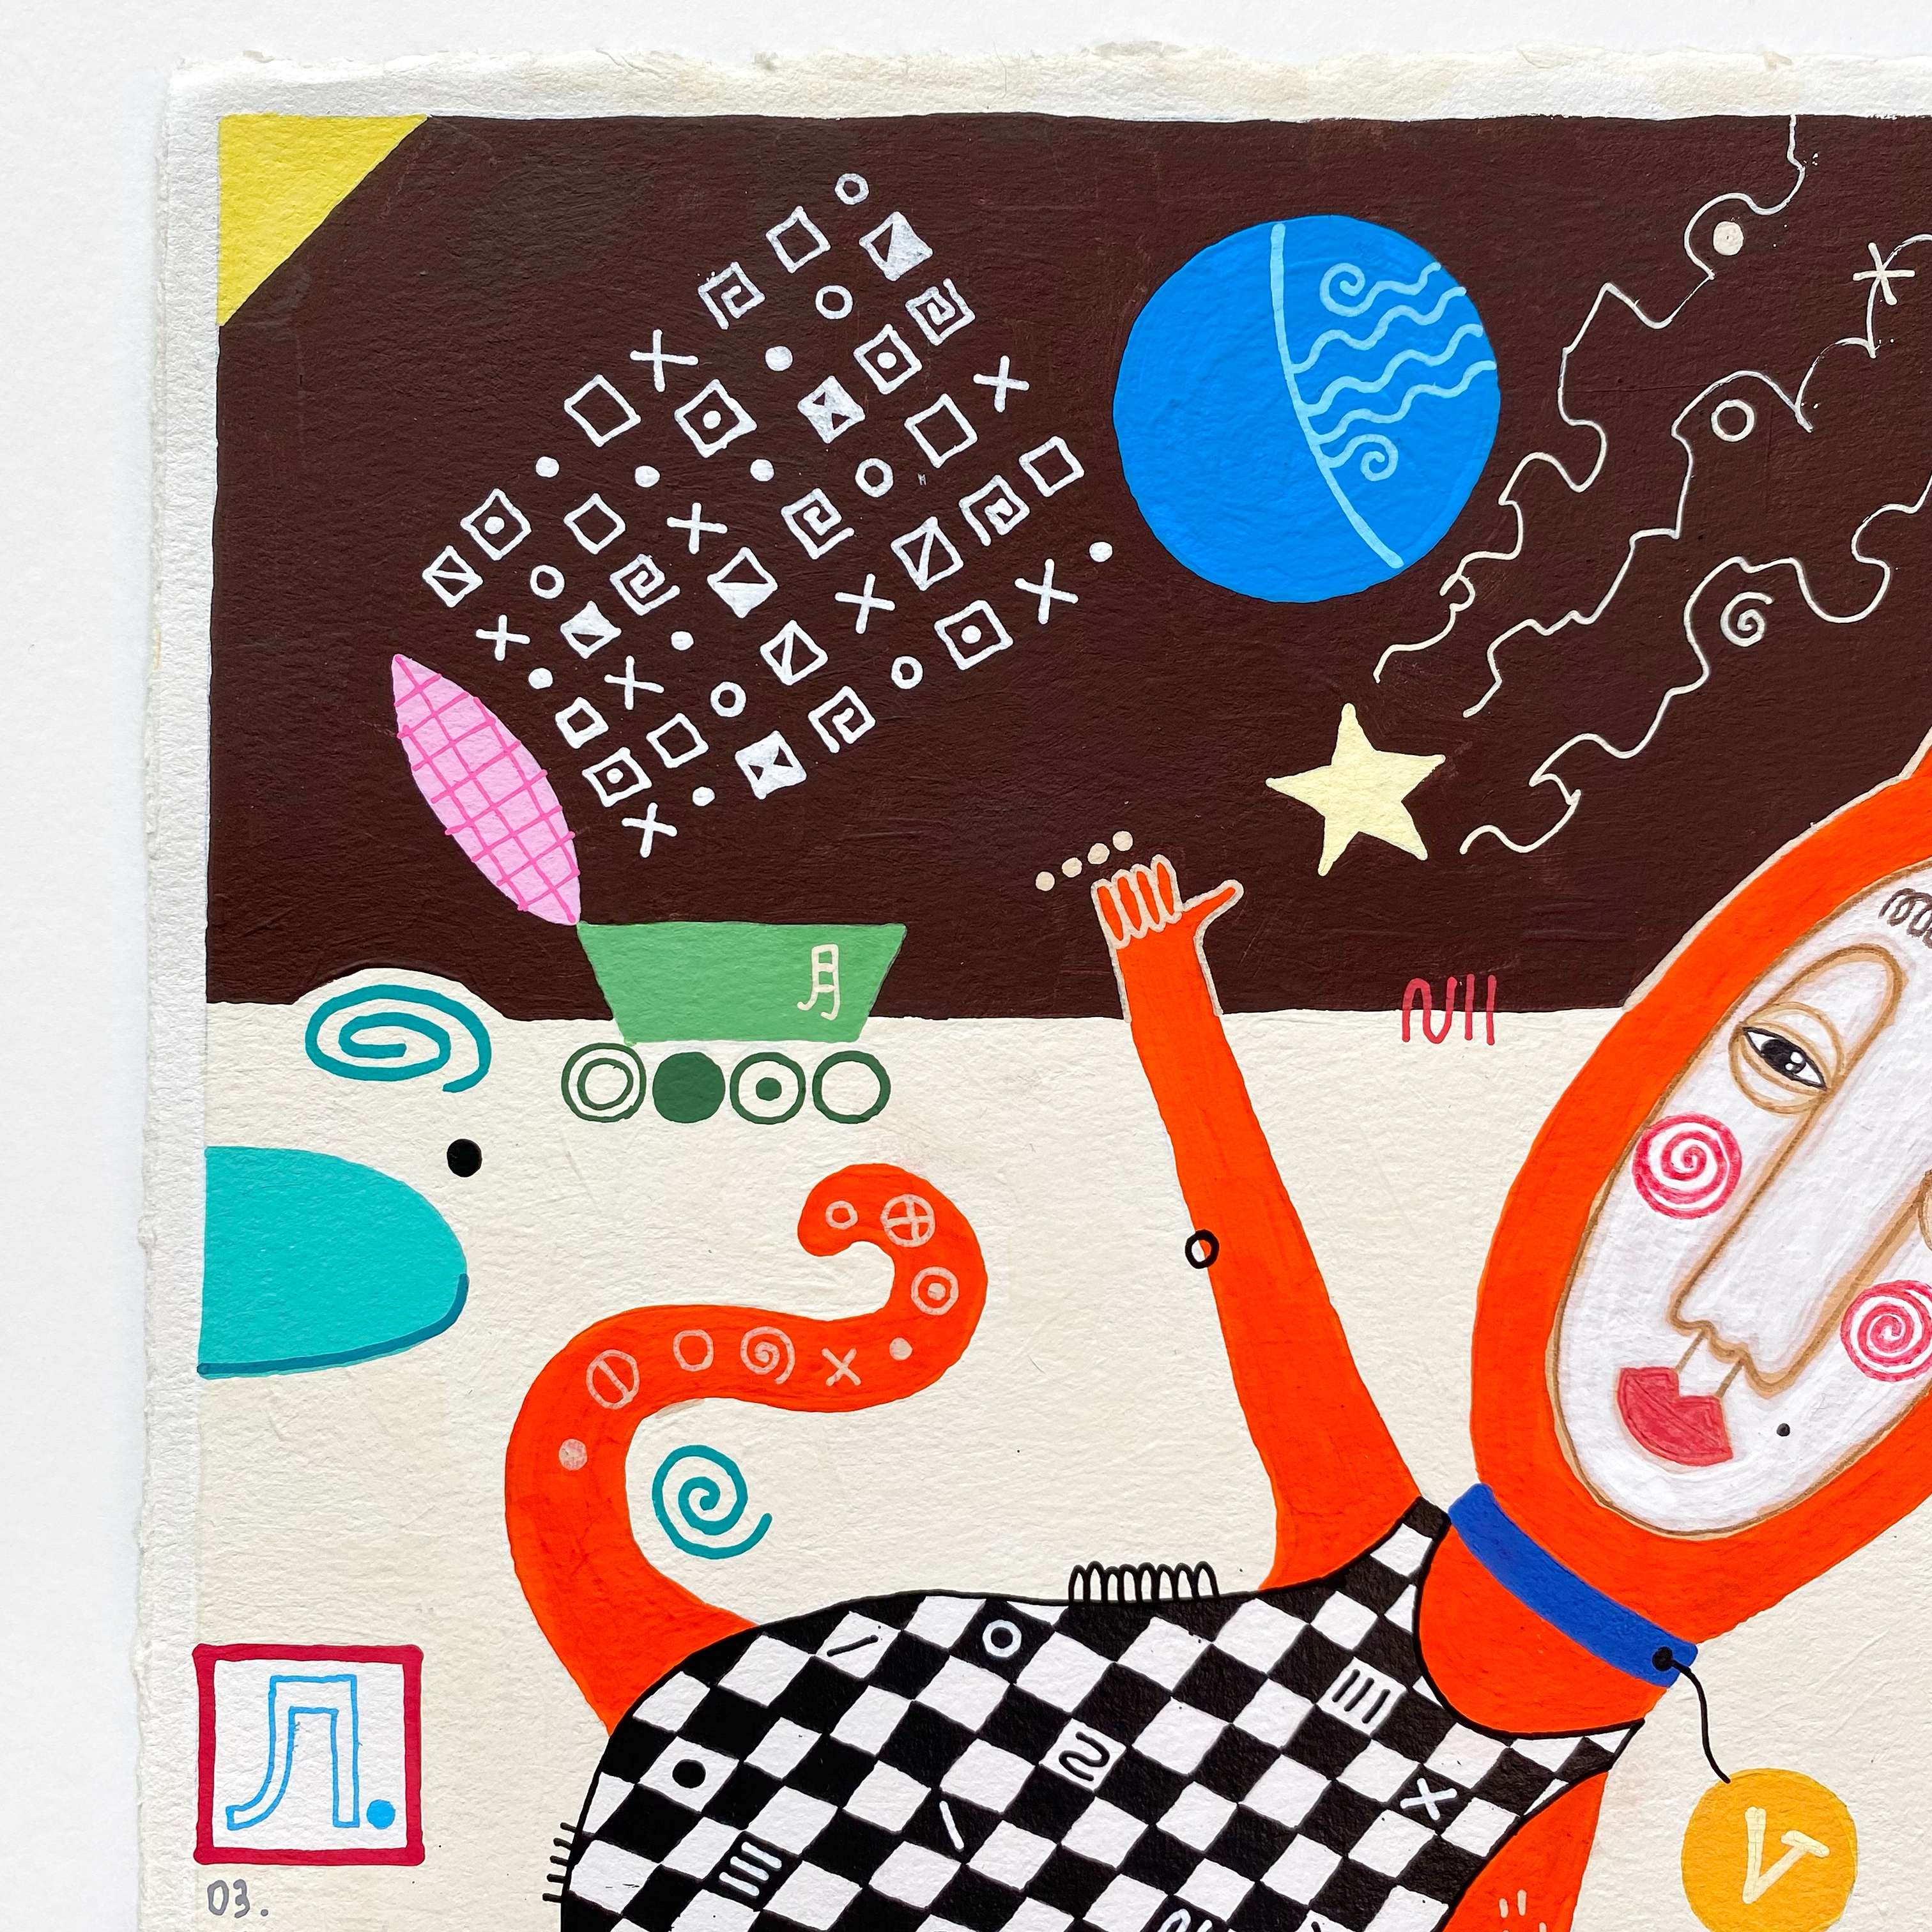 月
Л.
03.
V